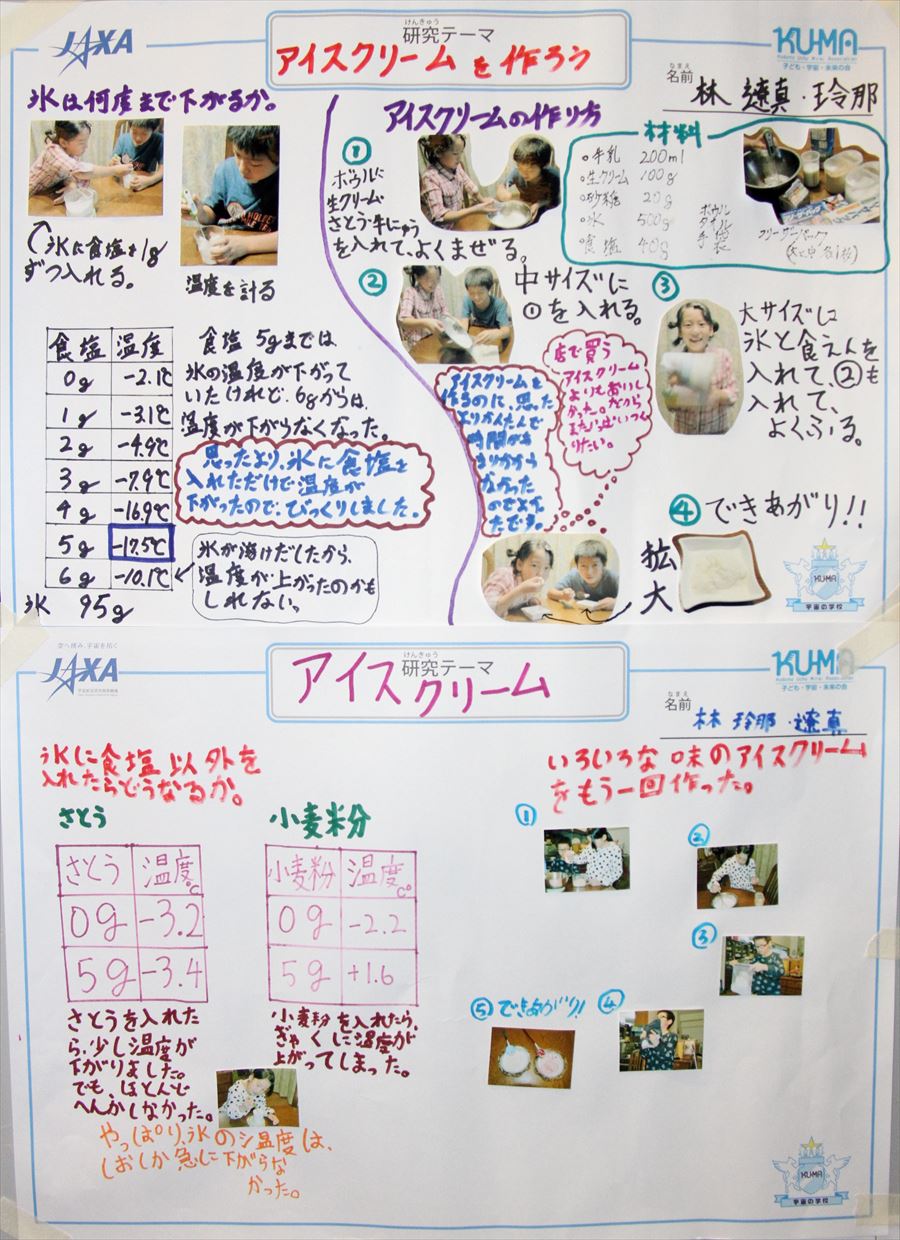 JAXA
けんきゅう
研究テーマ
アイスクリームを作ろう
KU-MA
子ども・宇宙・未来の会
なまえ
名前
林 遼真・玲那
氷は何度まで下がるか。
氷に食塩を1g
ずつ入れる。
温度を計る
食塩 温度
0g -2.1℃
1g -3.1℃
2g -4.9℃
3g -7.9℃
4g -16.9℃
5g -17.5℃
6g -10.1℃
氷 95g
食塩 5gまでは、
氷の温度が下がって
いたけれど、6gからは、
温度が下がらなくなった。
思ったより、氷に食塩を
入れただけで温度が
下がったので、びっくりしました。
氷が溶けだしたから、
温度が上がったのかも
しれない。
アイスクリームの作り方
①
ボウルに
生クリーム
さとう・牛にゅう
を入れて、よくまぜる。
材料
牛乳 200ml
生クリーム 100g
砂糖 20g
氷 500g
食塩 40g
ボウル
タオル
手袋
フリーザーパック
②
中サイズに
①を入れる。
③
大サイズに
氷と食えんを
入れて、②も
入れて、
よくふる。
アイスクリームを
作るのに、思った
よりかんたんで
時間があ
まりかから
なかった
のでよかっ
たです。
店で買う
アイスクリーム
よりもおいし
かった。だから
またいっぱいつく
りたい。
④できあがり!!
拡
大
KU-MA
宇宙の学校
空へ挑み、宇宙を拓く
JAXA
けんきゅう
研究テーマ
アイスクリーム
KU-MA
子ども・宇宙・未来の会
なまえ
名前
林 玲那・遼真
氷に食塩以外を
入れたらどうなるか。
さとう
さとう 温度℃
0g -3.2
5g -3.4
さとうを入れた
ら、少し温度が
下がりました。
でも、ほとんど
へんかしなかった。
小麦粉
小麦粉 温度C°
0g -2.2
5g +1.6
小麦粉を入れたら、
ぎゃくに温度が
上がってしまった。
やっぱり、氷の温度は、
しおしか急に下がらな
かった。
いろいろな味のアイスクリーム
をもう一回作った。
①
②
③
④
⑤できあがり!
KU-MA
宇宙の学校